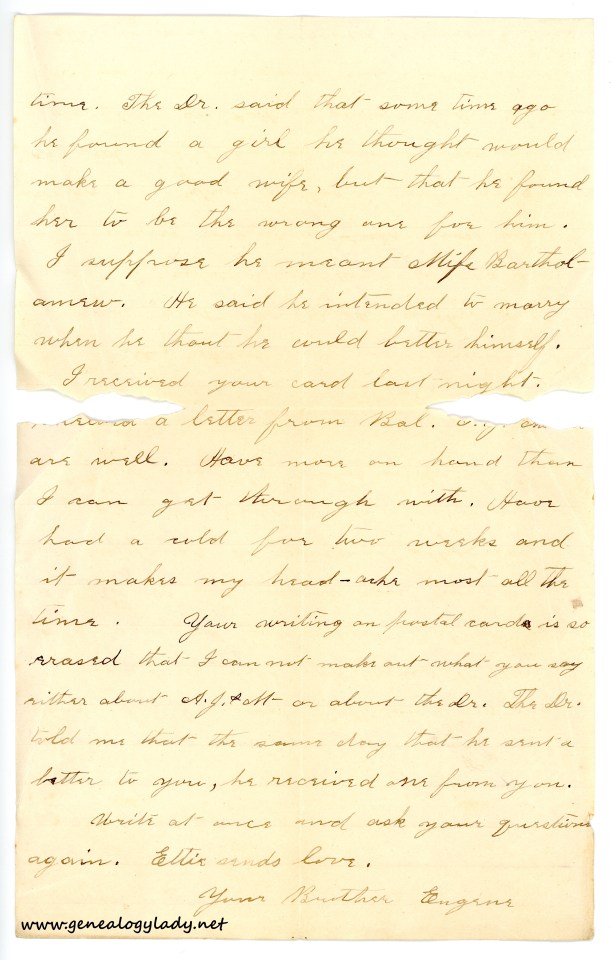 time. The Dr. said that some time ago
he found a girl he thought would
make a good wife, but that he found
her to be the wrong one for him.
I suppose he meant Miss Barthol-
amew. He said he intended to marry
when he thout he could better himself.
I received your card last night.
a letter from Bal.
are well. Have more on hand than
I can get through with. Have
had a cold for two weeks and
it makes my head-ache most all the
time. Your writing on postal cards is so
erased that I can not make out what you say
either about A.J. & M or about the Dr. The Dr.
told me that the same day that he sent a
letter to you, he received one from you.
Write at once and ask your questions
again. Ettie sends love.
Your Brother Eugene
www.genealogylady.net